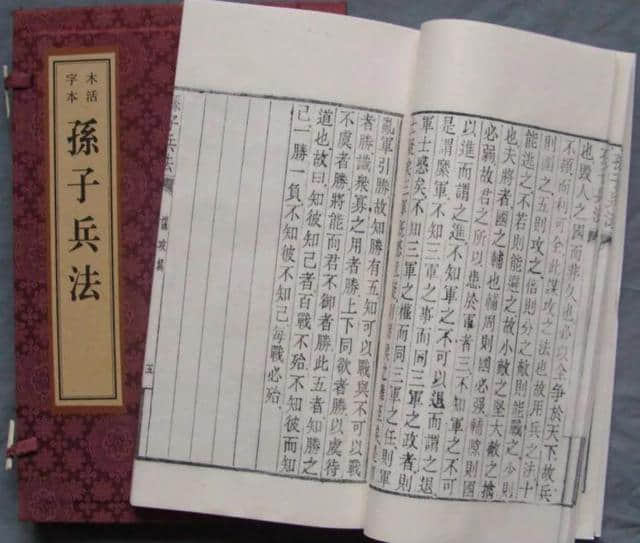 木活
字本
孫子兵法
也毀人之國而非久也必以全爭於天下故兵
不頓而利可全此謀攻之法也故用兵之法十
則圍之五則攻之倍則分之敵則能戰之少則
能逃之不若則能避之故小敵之堅大敵之擒
也夫將者國之輔也輔周則國必强輔隙則國
必弱故君之所以患於軍者三不知軍之不可
以進而謂之進不知軍之不可以退而謂之退
是謂縻軍不知三軍之事而同三軍之政者則
軍士惑矣不知三軍之權而同三軍之任則軍
士疑矣三軍既惑且疑
亂軍引勝故知勝有五知可以戰與不可以戰
者勝識衆寡之用者勝上下同欲者勝以虞待
不虞者勝將能而君不御者勝此五者知勝之
道也故曰知彼知己者百戰不殆不知彼而知
己一勝一負不知彼不知己每戰必殆
孫子兵法
謀攻篇
五